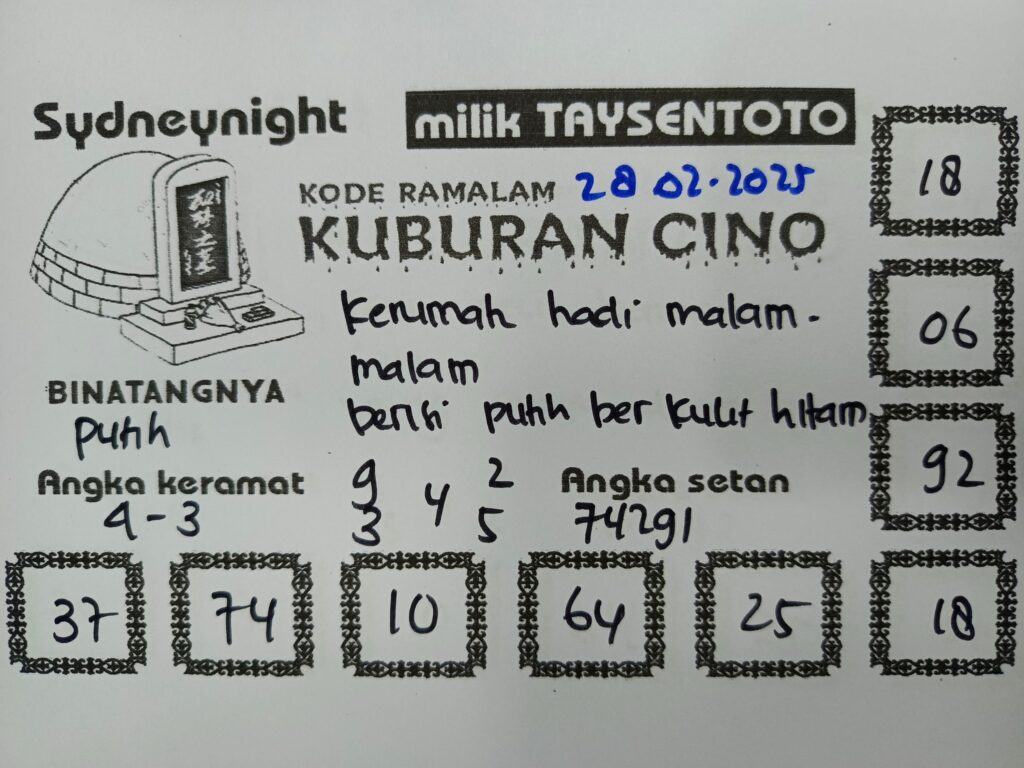 Sydneynight
milik TAYSENTOTO
KODE RAMALAM 28 02.2025
KUBURAN CINO
Kerumah hadi malam.
malam
berisi putih ber kulit hitam
BINATANGNYA
putih
Angka keramat
4-3
9 4 2
3 5
Angka setan
74291
18
06
92
37 74 10 64 25 18